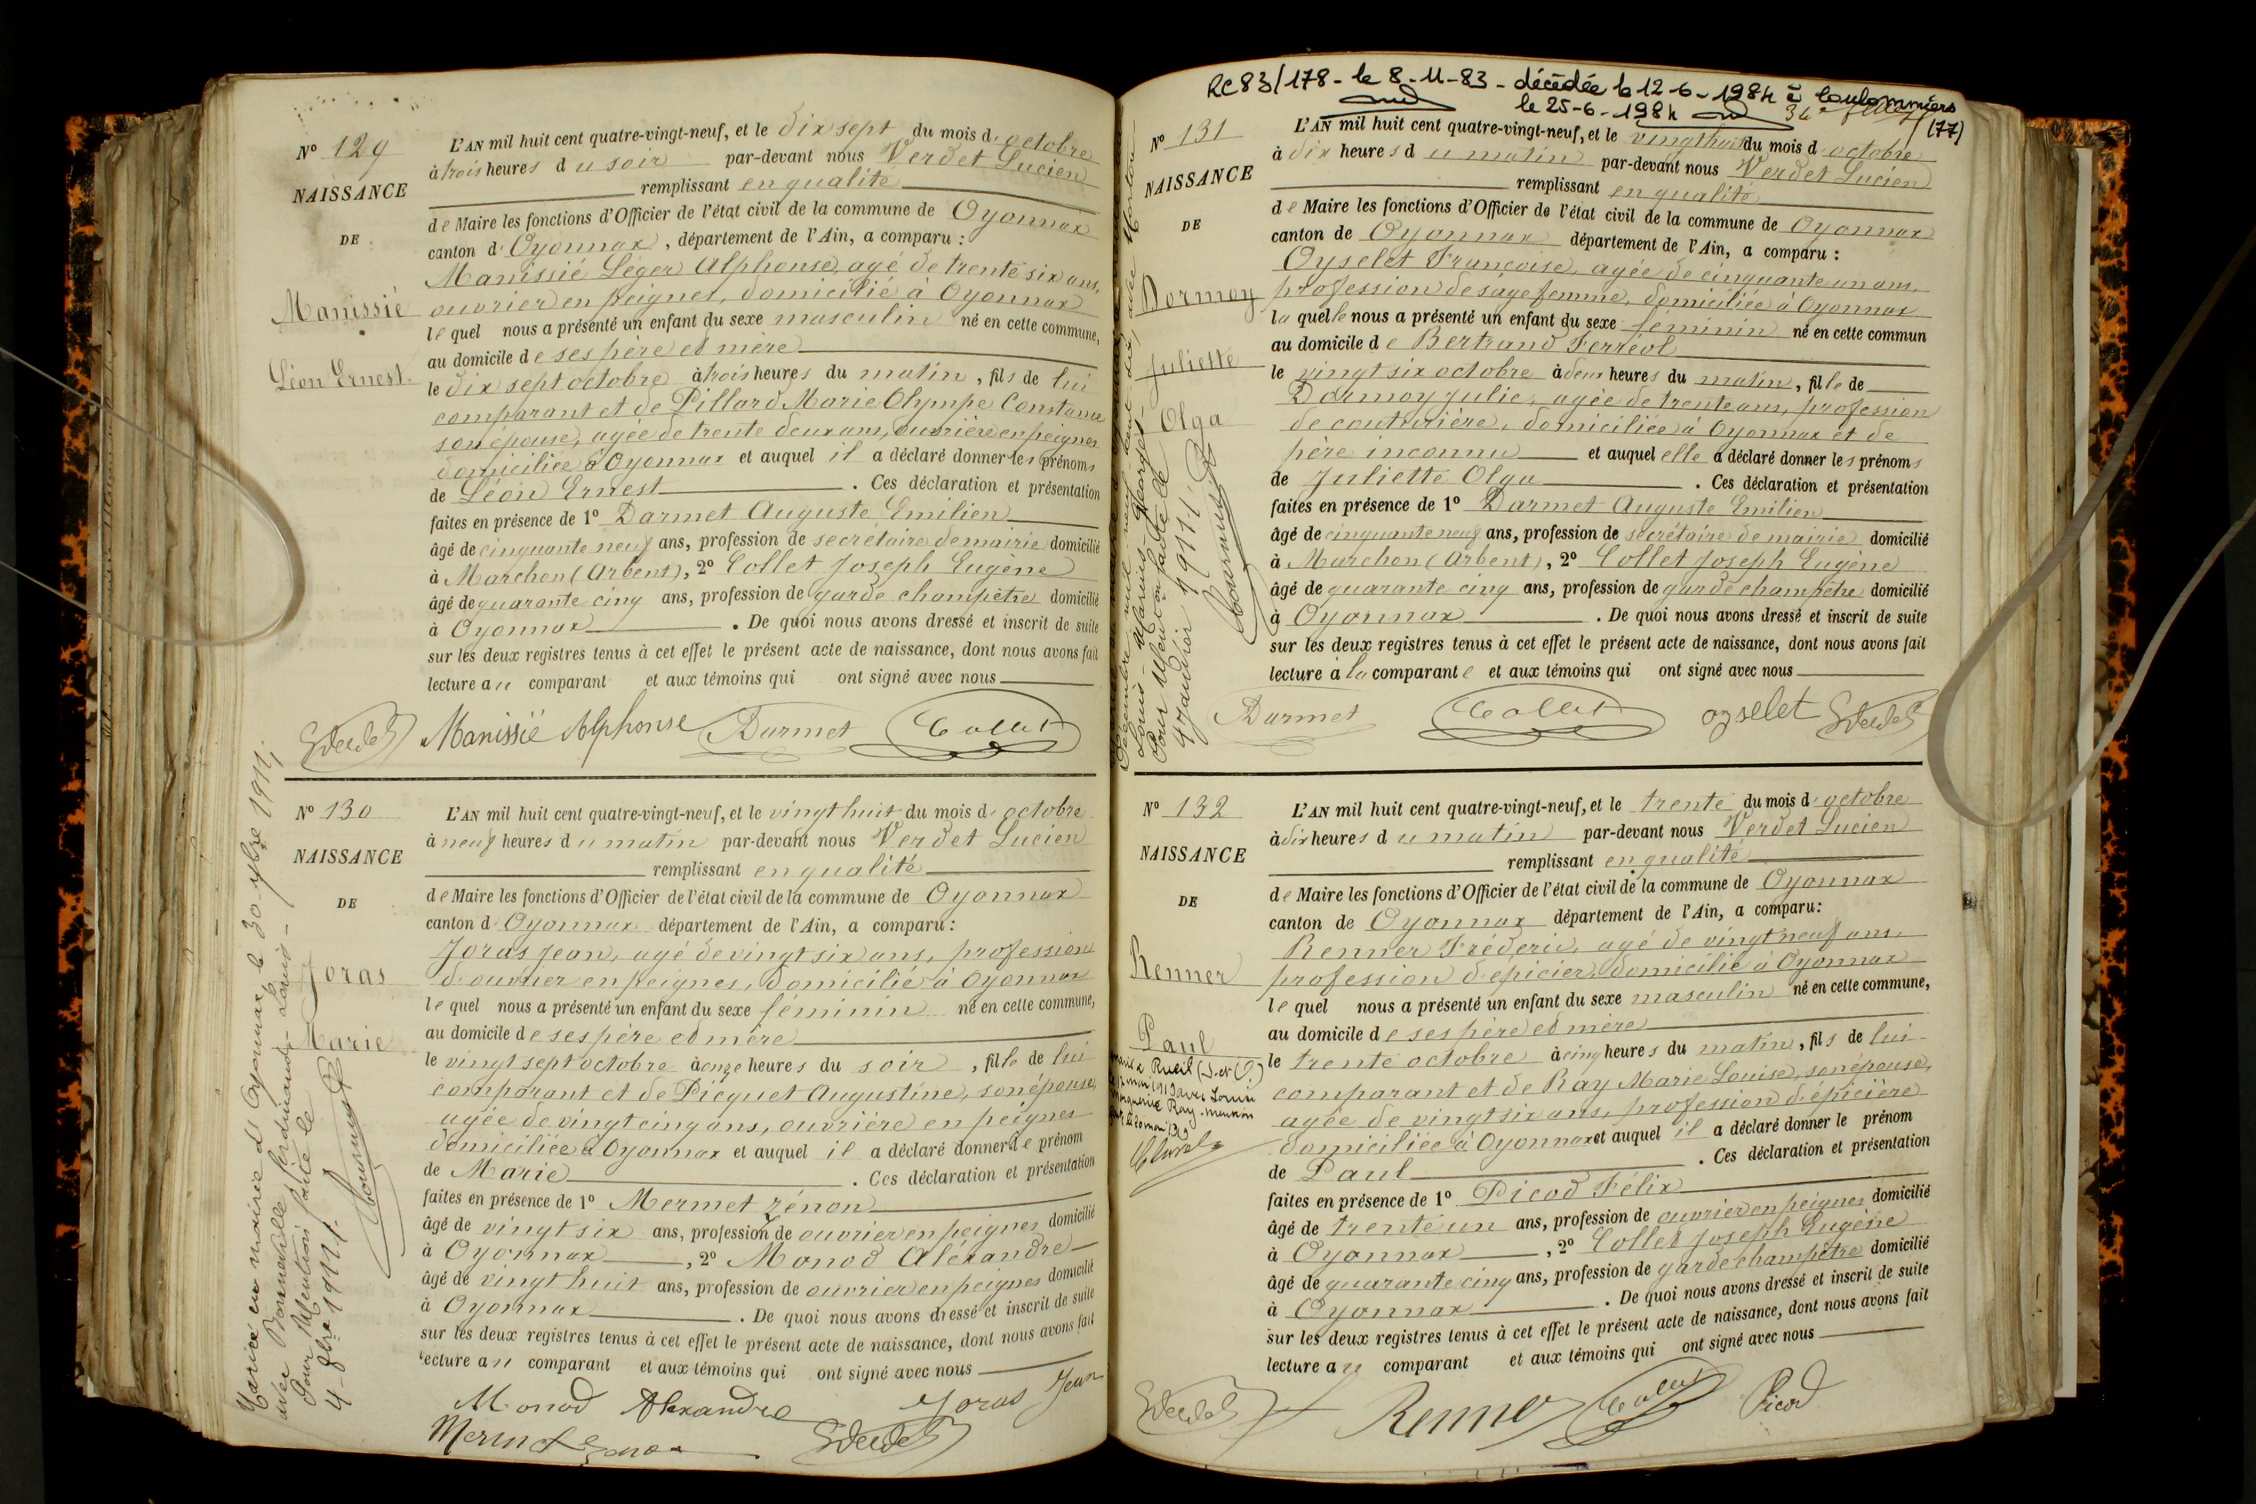 N° 129
NAISSANCE
DE
Manissié
Léon Ernest
L'AN mil huit cent quatre-vingt-neuf, et le dix sept du mois d'octobre
à trois heures du soir par-devant nous Verdet Lucien
remplissant en qualité
de Maire les fonctions d'Officier de l'état civil de la commune de Oyonnax
canton d'Oyonnax, département de l'Ain, a comparu :
Manissié Léger Alphonse, agé de trente six ans,
ouvrier en peignes, domicilié à Oyonnax
lequel nous a présenté un enfant du sexe masculin né en cette commune,
au domicile de ses père et mère
le dix sept octobre à trois heures du matin, fils de lui
comparant et de Pillard Marie Olympe Constance
son épouse, agée de trente deux ans, ouvrière en peignes
domiciliée à Oyonnax et auquel il a déclaré donner les prénoms
de Léon Ernest. Ces déclaration et présentation
faites en présence de 1° Darmet Auguste Emilien
âgé de cinquante neuf ans, profession de secrétaire de mairie domicilié
à Marchon (Arbent), 2° Collet Joseph Eugène
âgé de quarante cinq ans, profession de garde champêtre domicilié
à Oyonnax. De quoi nous avons dressé et inscrit de suite
sur les deux registres tenus à cet effet le présent acte de naissance, dont nous avons fait
lecture au comparant et aux témoins qui ont signé avec nous
LVerdet Manissié Alphonse Darmet Collet
N° 130
NAISSANCE
DE
Joras
Marie
Mariée en mairie d'Oyonnax le 30 9bre 1911,
avec Bonneville Ferdinand-Louis-
Pour Mention faite le
4 Xbre 1911.
L'AN mil huit cent quatre-vingt-neuf, et le vingt huit du mois d'octobre
à neuf heures du matin par-devant nous Verdet Lucien
remplissant en qualité
de Maire les fonctions d'Officier de l'état civil de la commune de Oyonnax
canton d'Oyonnax département de l'Ain, a comparu :
Joras Jean, agé de vingt six ans, profession
d'ouvrier en peignes, domicilié à Oyonnax
lequel nous a présenté un enfant du sexe féminin né en cette commune,
au domicile de ses père et mère
le vingt sept octobre à onze heures du soir, fille de lui
comparant et de Picquet Augustine, son épouse,
agée de vingt cinq ans, ouvrière en peignes
domiciliée à Oyonnax et auquel il a déclaré donner le prénom
de Marie. Ces déclaration et présentation
faites en présence de 1° Mermet Zénon
âgé de vingt six ans, profession de ouvrier en peignes domicilié
à Oyonnax, 2° Monod Aléxandre
âgé de vingt huit ans, profession de ouvrier en peignes domicilié
à Oyonnax. De quoi nous avons dressé et inscrit de suite
sur les deux registres tenus à cet effet le présent acte de naissance, dont nous avons fait
lecture au comparant et aux témoins qui ont signé avec nous
Monod Alexandre Joras Jean
Mermet Zénon LVerdet
RC 83/178 - le 8-11-83 - décédée le 12-6-1984 à Coulommiers
le 25-6-1984
(77)
N° 131
NAISSANCE
DE
Dormoy
Juliette
Olga
Louis-Marius-Georges-
Pour Mention faite le
4 Janvier 1911.
L'AN mil huit cent quatre-vingt-neuf, et le vingt huit du mois d'octobre
à dix heures du matin par-devant nous Verdet Lucien
remplissant en qualité
de Maire les fonctions d'Officier de l'état civil de la commune de Oyonnax
canton de Oyonnax département de l'Ain, a comparu :
Oyselet Françoise, agée de cinquante un ans,
profession de sage femme, domiciliée à Oyonnax
laquelle nous a présenté un enfant du sexe féminin né en cette commun
au domicile de Bertrand Ferréol
le vingt six octobre à deux heures du matin, fille de
Dormoy Julie, agée de trente ans, profession
de couturière, domiciliée à Oyonnax et de
père inconnu et auquel elle a déclaré donner les prénoms
de Juliette Olga. Ces déclaration et présentation
faites en présence de 1° Darmet Auguste Emilien
âgé de cinquante neuf ans, profession de secrétaire de mairie domicilié
à Marchon (Arbent), 2° Collet Joseph Eugène
âgé de quarante cinq ans, profession de garde champêtre domicilié
à Oyonnax. De quoi nous avons dressé et inscrit de suite
sur les deux registres tenus à cet effet le présent acte de naissance, dont nous avons fait
lecture à la comparante et aux témoins qui ont signé avec nous
Darmet Collet oyselet LVerdet
N° 132
NAISSANCE
DE
Renner
Paul
L'AN mil huit cent quatre-vingt-neuf, et le trente du mois d'octobre
à dix heures du matin par-devant nous Verdet Lucien
remplissant en qualité
de Maire les fonctions d'Officier de l'état civil de la commune de Oyonnax
canton de Oyonnax département de l'Ain, a comparu :
Renner Fréderic, agé de vingt neuf ans,
profession d'epicier, domicilié à Oyonnax
lequel nous a présenté un enfant du sexe masculin né en cette commune,
au domicile de ses père et mère
le trente octobre à cinq heures du matin, fils de lui
comparant et de Ray Marie Louise, son épouse,
agée de vingt six ans, profession d'épicière
domiciliée à Oyonnax et auquel il a déclaré donner le prénom
de Paul. Ces déclaration et présentation
faites en présence de 1° Picod Félix
âgé de trente un ans, profession de ouvrier en peignes domicilié
à Oyonnax, 2° Collet Joseph Eugène
âgé de quarante cinq ans, profession de garde champêtre domicilié
à Oyonnax. De quoi nous avons dressé et inscrit de suite
sur les deux registres tenus à cet effet le présent acte de naissance, dont nous avons fait
lecture au comparant et aux témoins qui ont signé avec nous
LVerdet Renner Collet Picod